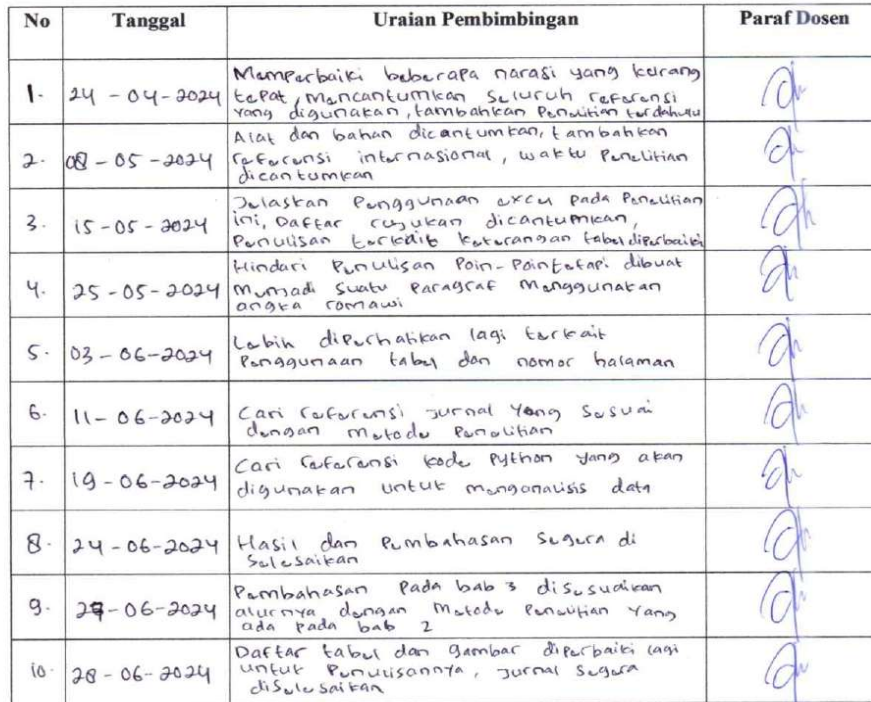 No Tanggal Uraian Pembimbingan Paraf Dosen
1. 24 - 04 - 2024 Memperbaiki beberapa narasi yang kurang
tepat, mencantumkan seluruh referensi
yang digunakan, tambahkan Penelitian terdahulu
2. 08 - 05 - 2024 Alat dan bahan dicantumkan, tambahkan
referensi internasional, waktu Penelitian
dicantumkan
3. 15 - 05 - 2024 Jelaskan Penggunaan excel pada Penelitian
ini, Daftar rujukan dicantumkan,
Penulisan terkait keterangan tabel diperbaiki
4. 25 - 05 - 2024 Hindari Penulisan Poin-Poin tetapi dibuat
menjadi suatu Paragraf menggunakan
angka romawi
5. 03 - 06 - 2024 Lebih diperhatikan lagi terkait
Penggunaan tabel dan nomor halaman
6. 11 - 06 - 2024 Cari referensi Jurnal Yang Sesuai
dengan metode Penelitian
7. 19 - 06 - 2024 Cari referensi kode Python yang akan
digunakan untuk menganalisis data
8. 24 - 06 - 2024 Hasil dan Pembahasan Segera di
Selesaikan
9. 27 - 06 - 2024 Pembahasan Pada bab 3 disesuaikan
alurnya dengan Metode Penelitian Yang
ada Pada bab 2
10. 28 - 06 - 2024 Daftar tabel dan gambar diperbaiki lagi
untuk Penulisannya, Jurnal Segera
diselesaikan